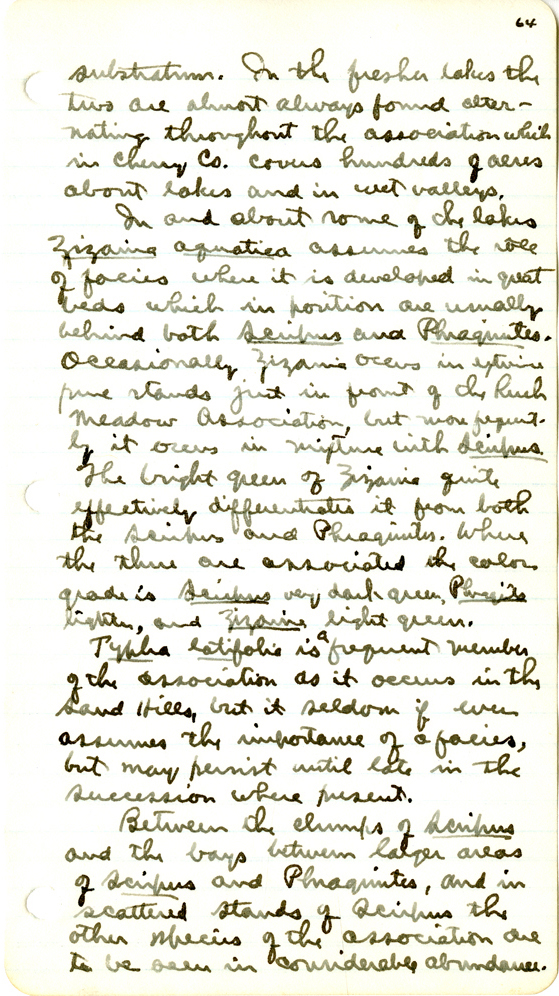 64
substratum. In the fresher lakes the
two are almost always found alter-
nating throughout the association which
in Cherry Co. covers hundreds of acres
about lakes and in wet valleys.
In and about some of the lakes
Zizania aquatica assumes the role
of facies where it is developed in great
beds which in position are usually
behind both Scirpus and Phragmites.
Occasionally Zizania occurs in
pure stands just in front of the Rush
Meadow Association, but more frequent-
ly it occurs in mixture with Scirpus.
The bright green of Zizania quite
effectively differentiates it from both
the Scirpus and Phragmites. Where
the three are associated the color
grade is Scirpus very dark green, Phragmites
lighter, and Zizania light green.
Typha latifolia is a frequent member
of the association as it occurs in the
Sand Hills, but it seldom if ever
assumes the importance of a facies,
but may persist until late in the
succession where present.
Between the clumps of Scirpus
and the bays between larger areas
of Scirpus and Phragmites, and in
scattered stands of Scirpus the
other species of the association are
to be seen in considerable abundance.